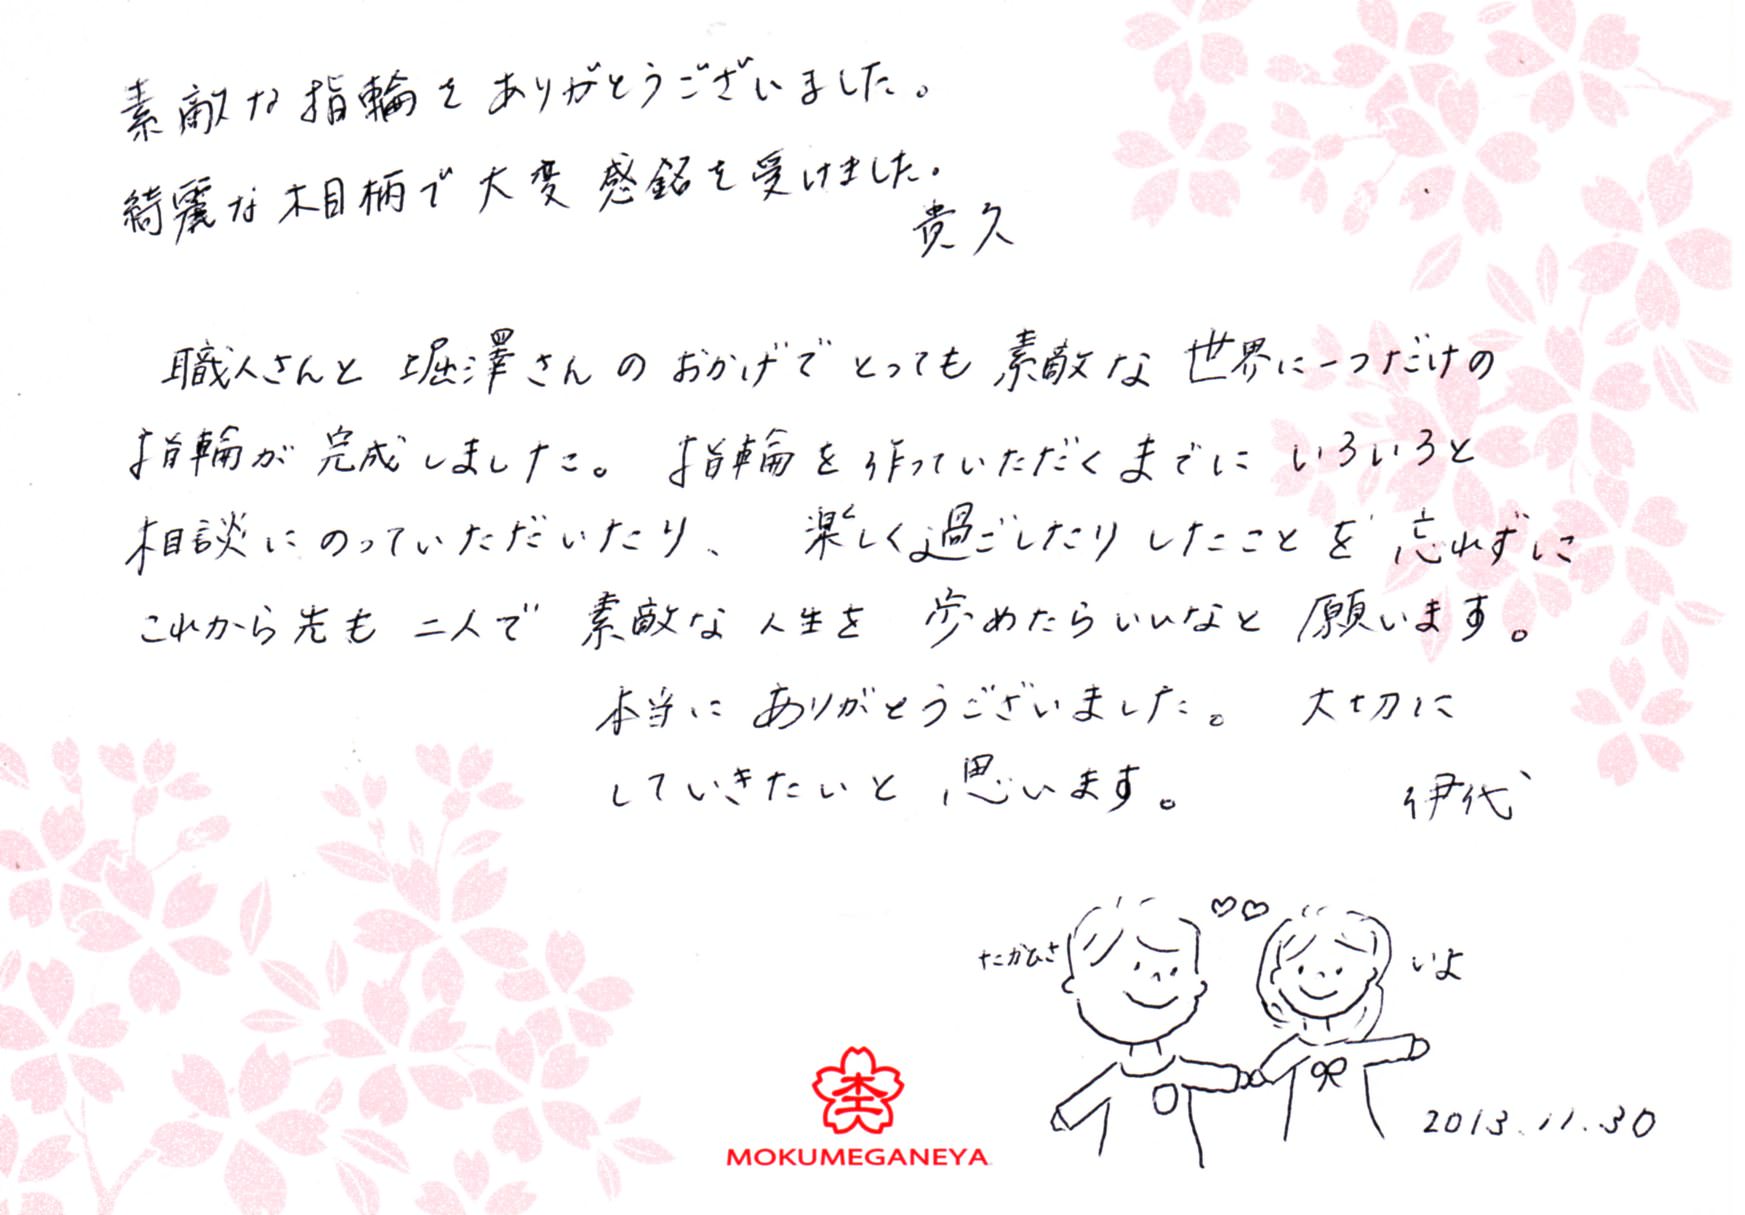 素敵な指輪をありがとうございました。
綺麗な木目柄で大変感銘を受けました。
貴久
職人さんと堀澤さんのおかげでとっても素敵な世界に一つだけの
指輪が完成しました。指輪を作っていただくまでにいろいろと
相談にのっていただいたり、楽しく過ごしたりしたことを忘れずに
これから先も二人で素敵な人生を歩めたらいいなと願います。
本当にありがとうございました。大切に
していきたいと思います。
伊代
たかひさ
いよ
2013.11.30
MOKUMEGANEYA